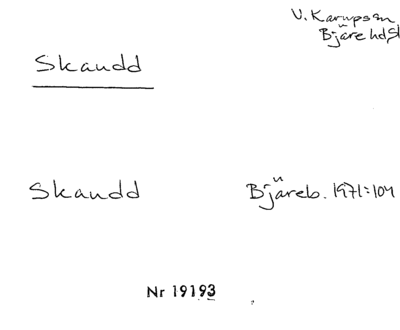 V. Karupssn
Bjäre hd Sk
Skaudd
Skaudd Bjäreb. 1971:104
Nr 19193